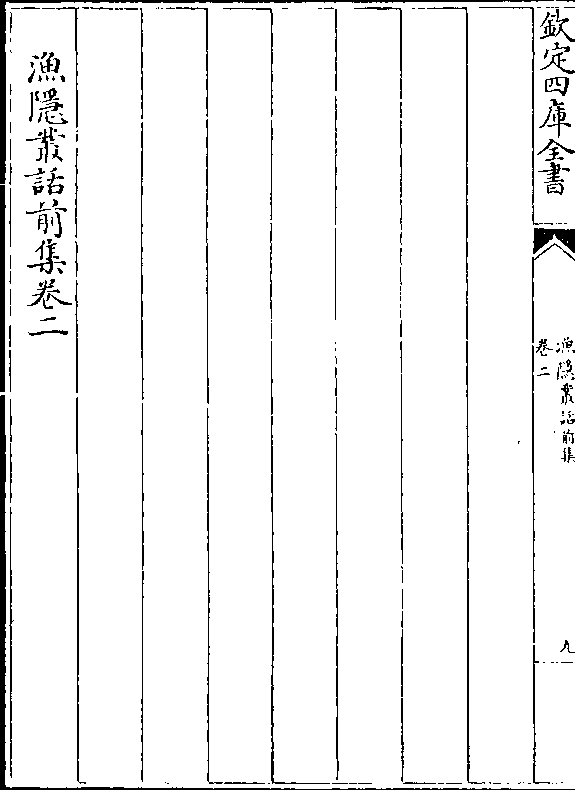 欽定四庫全書
漁隱叢話前集
卷二
九
漁隱叢話前集卷二